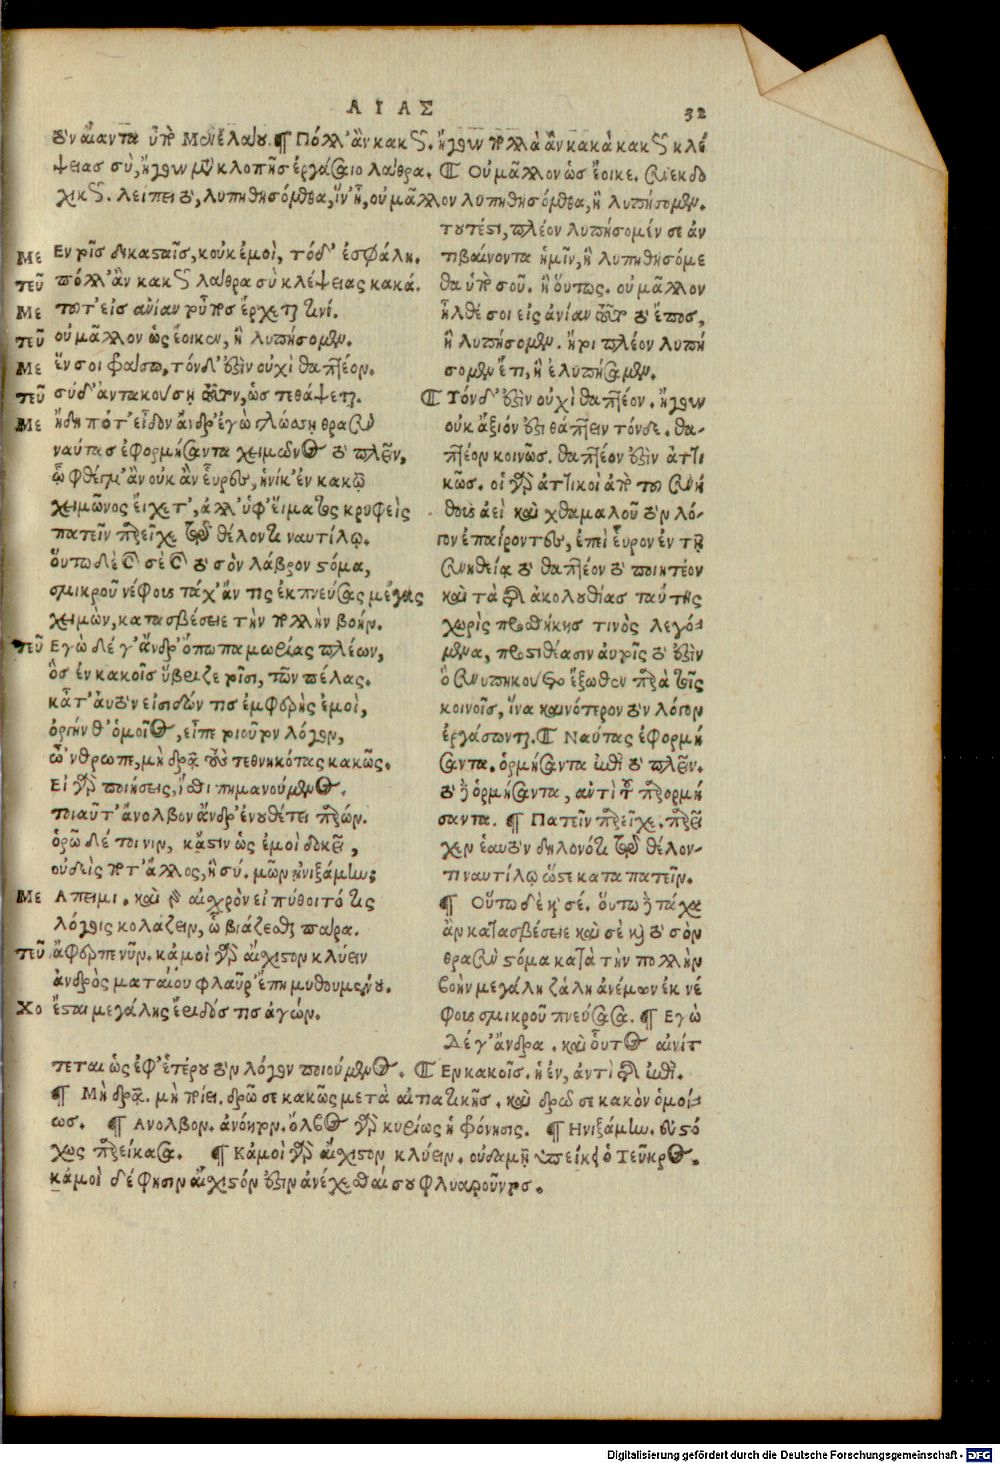 ΑΙΑΣ
32
τὸν αἴαντα ὑπὸ Μενελάου. ¶ Πόλλ' ἂν κακῶς. ἤγουν πολλὰ ἂν κακὰ κακῶς κλέ
ψειας σὺ, ἤγουν μετὰ κλοπῆς ἐργάσαιο λάθρα. ¶ Οὐ μᾶλλον ὡς ἔοικε.
λείπει τὸ, λυπηθησόμεθα, ἵν' ᾖ, οὐ μᾶλλον λυπηθησόμεθα, ἢ λυπήσομεν.
Με Εν τοῖς δικασταῖς, κοὐκ ἐμοὶ, τόδ' ἐσφάλη.
τεῦ πόλλ' ἂν κακῶς λάθρα σὺ κλέψειας κακά.
Με τοῦτ' εἰς ἀνίαν τοὖπος ἔρχεταί τινί.
τεῦ οὐ μᾶλλον ὡς ἔοικεν, ἢ λυπήσομεν.
Με ἕν σοι φράσω, τόνδ' ἐστὶν οὐχὶ θαπτέον.
τεῦ σὺ δ' ἀντακούσῃ τοῦτον, ὡς τεθάψεται.
Με ἤδη πότ' εἶδον ἄνδρ' ἐγὼ γλώσσῃ θρασὺν
ναύτας ἐφορμήσαντα χειμῶνος τὸ πλεῖν,
ᾧ φθέγμ' ἂν οὐκ ἂν εὗρες, ἡνίκ' ἐν κακῷ
χειμῶνος εἴχετ', ἀλλ' ὑφ' εἵματος κρυφεὶς
πατεῖν παρεῖχε τῷ θέλοντι ναυτίλῳ.
οὕτω δὲ καὶ σὲ καὶ τὸ σὸν λάβρον στόμα,
σμικροῦ νέφους τάχ' ἄν τις ἐκπνεύσας μέγας
χειμὼν, κατασβέσειε τὴν πολλὴν βοήν.
τεῦ Εγὼ δέ γ' ἄνδρ' ὄπωπα μωρίας πλέων,
ὃς ἐν κακοῖς ὕβριζε τοῖσι, τῶν πέλας.
κᾆτ' αὐτὸν εἰσιδών τις ἐμφερὴς ἐμοὶ,
ὀργήν θ' ὁμοῖος, εἶπε τοιοῦτον λόγον,
ὦ 'νθρωπε, μὴ δρᾶ τοὺς τεθνηκότας κακῶς.
Εἰ γὰρ ποιήσεις, ἴσθι πημανούμενος.
τοιαῦτ' ἄνολβον ἄνδρ' ἐνουθέτει παρών.
ὁρῶ δέ τοί νιν, κᾄστιν ὡς ἐμοὶ δοκεῖ,
οὐδεὶς ποτ' ἄλλος, ἢ σύ. μῶν ᾐνιξάμην;
Με Απειμι. καὶ γὰρ αἰσχρὸν εἰ πύθοιτό τις
λόγοις κολάζειν, ᾧ βιάζεσθαι πάρα.
τεῦ ἄφερπε νῦν. κἀμοὶ γὰρ αἴσχιστον κλύειν
ἀνδρὸς ματαίου φλαῦρ' ἔπη μυθουμένου.
Χο ἔσται μεγάλης ἔριδός τις ἀγών.
τουτέστι, πλέον λυπήσομέν σε ἀν
τιβαίνοντα ἡμῖν, ἢ λυπηθησόμε
θα ὑπὸ σοῦ. ἢ οὕτως. οὐ μᾶλλον
ἦλθέ σοι εἰς ἀνίαν τοῦτο τὸ ἔπος,
ἢ λυπήσομεν. ἤτοι πλέον λυπή
σομεν ἔτι, ἢ ἐλυπήσαμεν.
¶ Τόνδ' ἐστὶν οὐχὶ θαπτέον. ἤγουν
οὐκ ἄξιόν ἐστι θάπτειν τόνδε. θα-
πτέον κοινῶς. θαπτέον ἐστὶν ἀττι
κῶς. οἱ γὰρ ἀττικοὶ ἀπὸ τοῦ συνή
θους ἀεὶ καὶ χθαμαλοῦ τὸν λό-
γον ἐπαίροντες, ἐπεὶ εὗρον ἐν τῇ
συνηθείᾳ τὸ θαπτέον τὸ ποιητέον
καὶ τὰ τῆς ἀκολουθίας ταύτης
χωρὶς προσθήκης τινὸς λεγό-
μενα, προστιθέασιν αὐτοῖς τὸ ἐστὶν
ὃ συνυπηκούετο ἔξωθεν παρὰ τοῖς
κοινοῖς, ἵνα καινότερον τὸν λόγον
ἐργάσωνται. ¶ Ναύτας ἐφορμή
σαντα. ὁρμήσαντα ἐπὶ τὸ πλεῖν.
τὸ δὲ ὁρμήσαντα, ἀντὶ τοῦ παρορμή
σαντα. ¶ Πατεῖν παρεῖχε. παρεῖ
χεν ἑαυτὸν δηλονότι τῷ θέλον-
τι ναυτίλῳ ὥστε καταπατεῖν.
¶ Οὕτω δὲ καὶ σέ. οὕτω δὲ τάχα
ἂν κατασβέσειε καὶ σὲ καὶ τὸ σὸν
θρασὺ στόμα κατὰ τὴν πολλὴν
βοὴν μεγάλη ζάλη ἀνέμων ἐκ νέ
φους σμικροῦ πνεύσασα. ¶ Εγὼ
Δέ γ' ἄνδρα. καὶ οὗτος αἰνίτ
τεται ὡς ἐφ' ἑτέρου τὸν λόγον ποιούμενος. ¶ Εν κακοῖς. ἡ ἐν, ἀντὶ τῆς ἐπί.
¶ Μὴ δρᾶ. μὴ ποίει. δρῶ σε κακῶς μετὰ αἰτιατικῆς. καὶ δρῶ σε κακὸν ὁμοί-
ως. ¶ Ανολβον. ἀνόητον. ὄλβος γὰρ κυρίως ἡ φρόνησις. ¶ Ηνιξάμην. εὐστό
χως παρείκασα. ¶ Κἀμοὶ γὰρ αἴσχιστον κλύειν. οὐδαμῇ ὑπείκει ὁ Τεῦκρος.
κἀμοὶ δέ φησιν αἴσχιστόν ἐστιν ἀνέχεσθαί σου φλυαροῦντος.
Digitalisierung gefördert durch die Deutsche Forschungsgemeinschaft - DFG